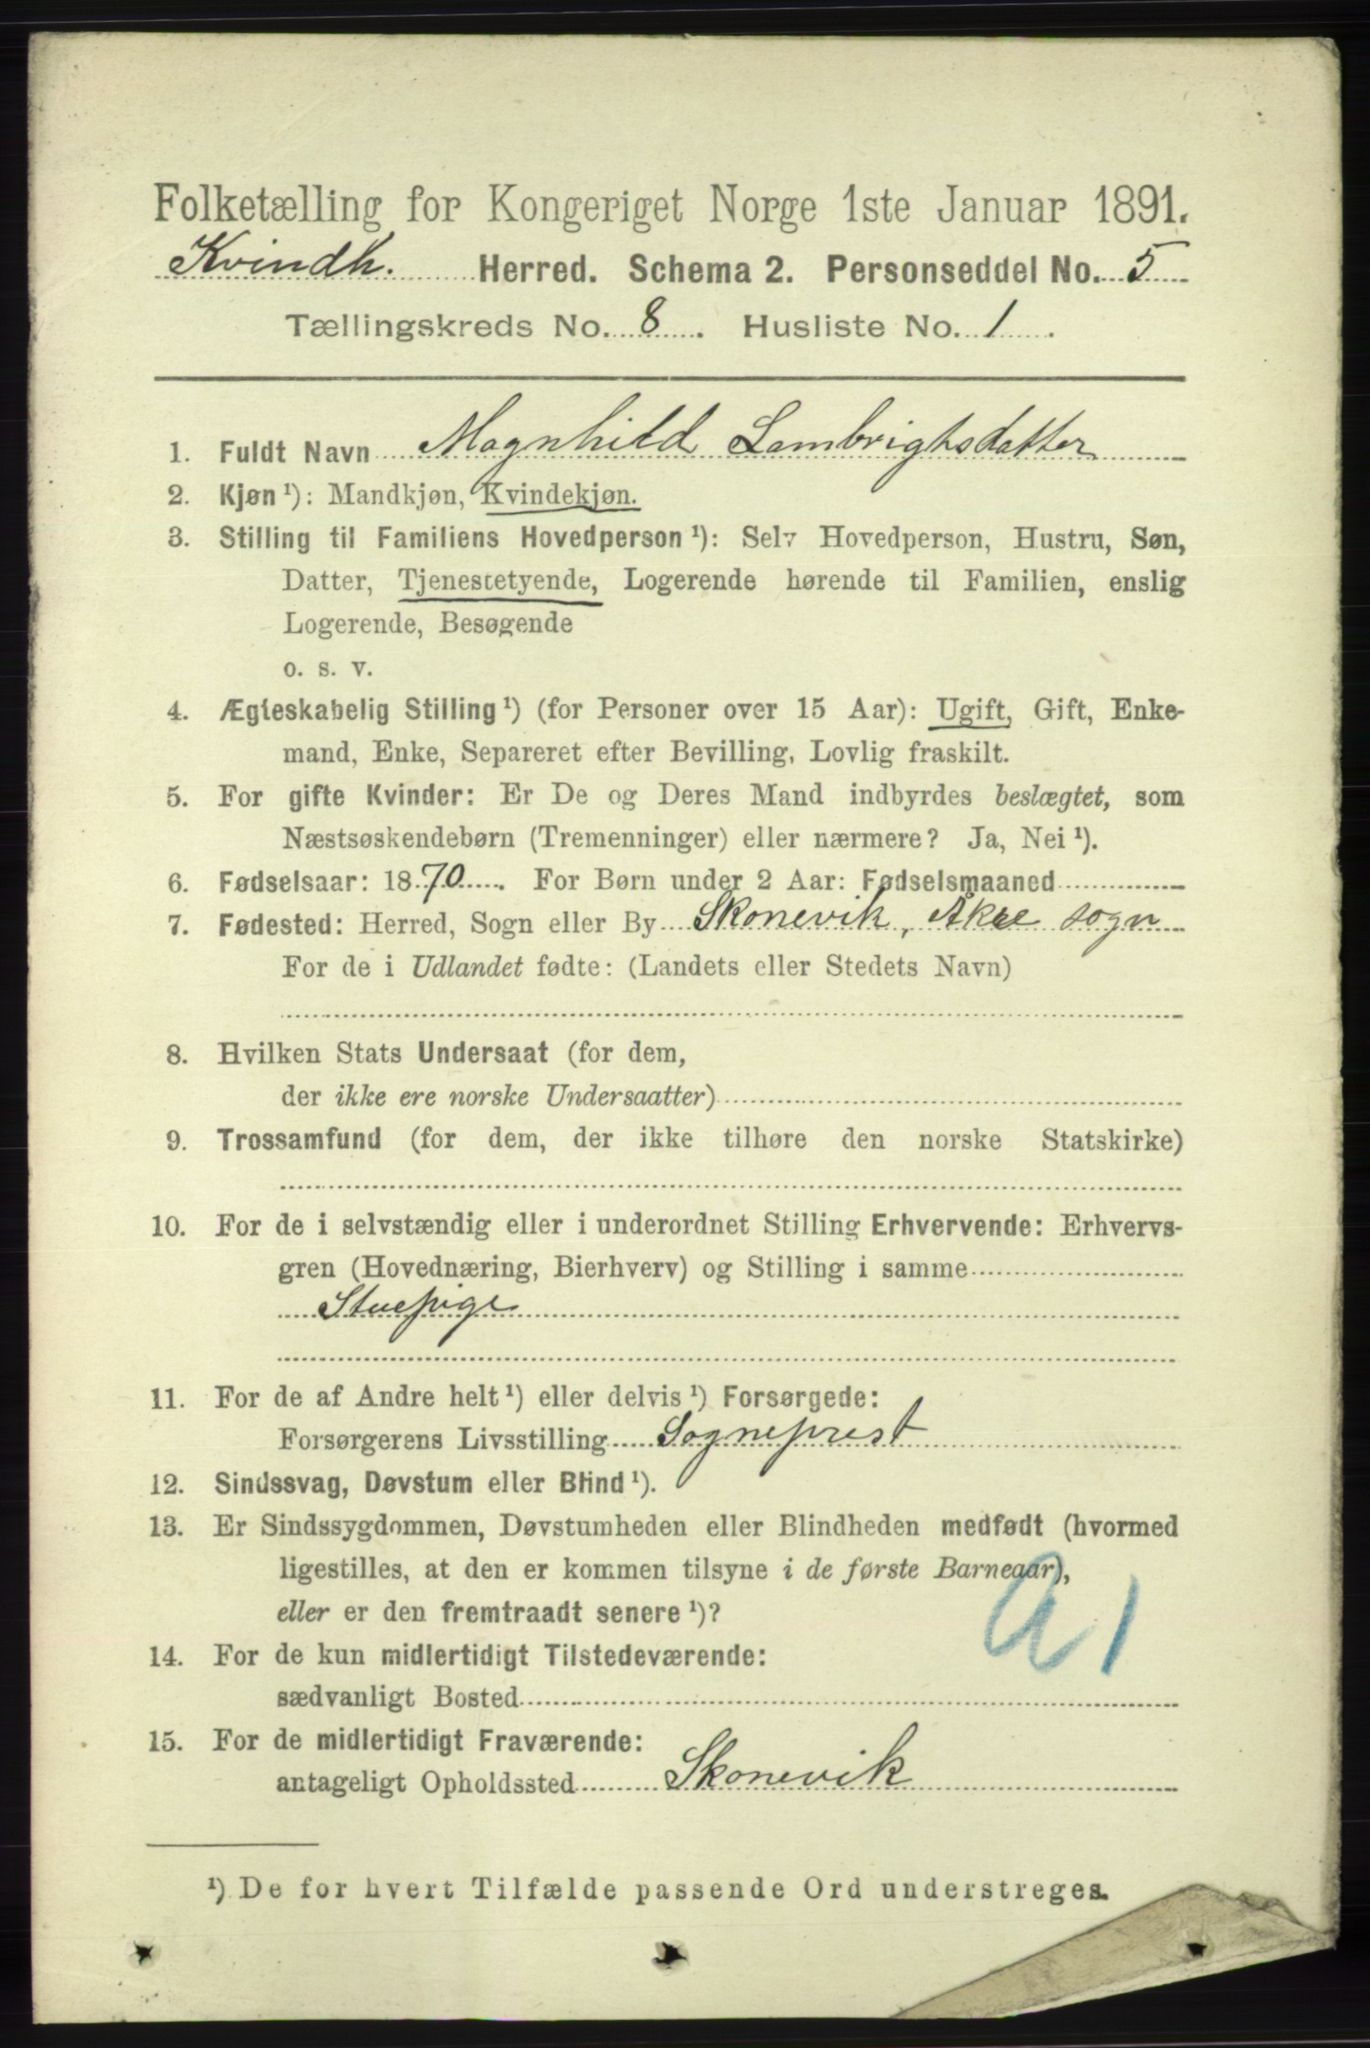 Folketælling for Kongeriget Norge 1ste Januar 1891.
Kvindh. Herred. Schema 2. Personseddel No. 5
Tællingskreds No. 8. Husliste No. 1.
1. Fuldt Navn Magnhild Lambrigtsdatter
2. Kjøn¹): Mandkjøn, Kvindekjøn.
3. Stilling til Familiens Hovedperson¹): Selv Hovedperson, Hustru, Søn,
Datter, Tjenestetyende, Logerende hørende til Familien, enslig
Logerende, Besøgende
o. s. v.
4. Ægteskabelig Stilling¹) (for Personer over 15 Aar): Ugift, Gift, Enke-
mand, Enke, Separeret efter Bevilling, Lovlig fraskilt.
5. For gifte Kvinder: Er De og Deres Mand indbyrdes beslægtet, som
Næstsøskendebørn (Tremenninger) eller nærmere? Ja, Nei¹).
6. Fødselsaar: 1870. For Børn under 2 Aar: Fødselsmaaned
7. Fødested: Herred, Sogn eller By Skonevik, Åkre sogn
For de i Udlandet fødte: (Landets eller Stedets Navn)
8. Hvilken Stats Undersaat (for dem,
der ikke ere norske Undersaatter)
9. Trossamfund (for dem, der ikke tilhøre den norske Statskirke)
10. For de i selvstændig eller i underordnet Stilling Erhvervende: Erhvervs-
gren (Hovednæring, Bierhverv) og Stilling i samme
Stuepige
11. For de af Andre helt¹) eller delvis¹) Forsørgede:
Forsørgerens Livsstilling Sogneprest
12. Sindssvag, Døvstum eller Blind¹).
13. Er Sindssygdommen, Døvstumheden eller Blindheden medfødt (hvormed
ligestilles, at den er kommen tilsyne i de første Barneaar),
eller er den fremtraadt senere¹)?
a 1
14. For de kun midlertidigt Tilstedeværende:
sædvanligt Bosted
15. For de midlertidigt Fraværende:
antageligt Opholdssted Skonevik
¹) De for hvert Tilfælde passende Ord understreges.